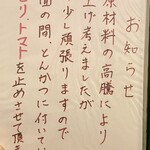 お知らせ
原材料の高騰により
上げ考えましたが
少し頑張りますので
面の間、とんかつに付いてい
り、トマトを止めさせて頂